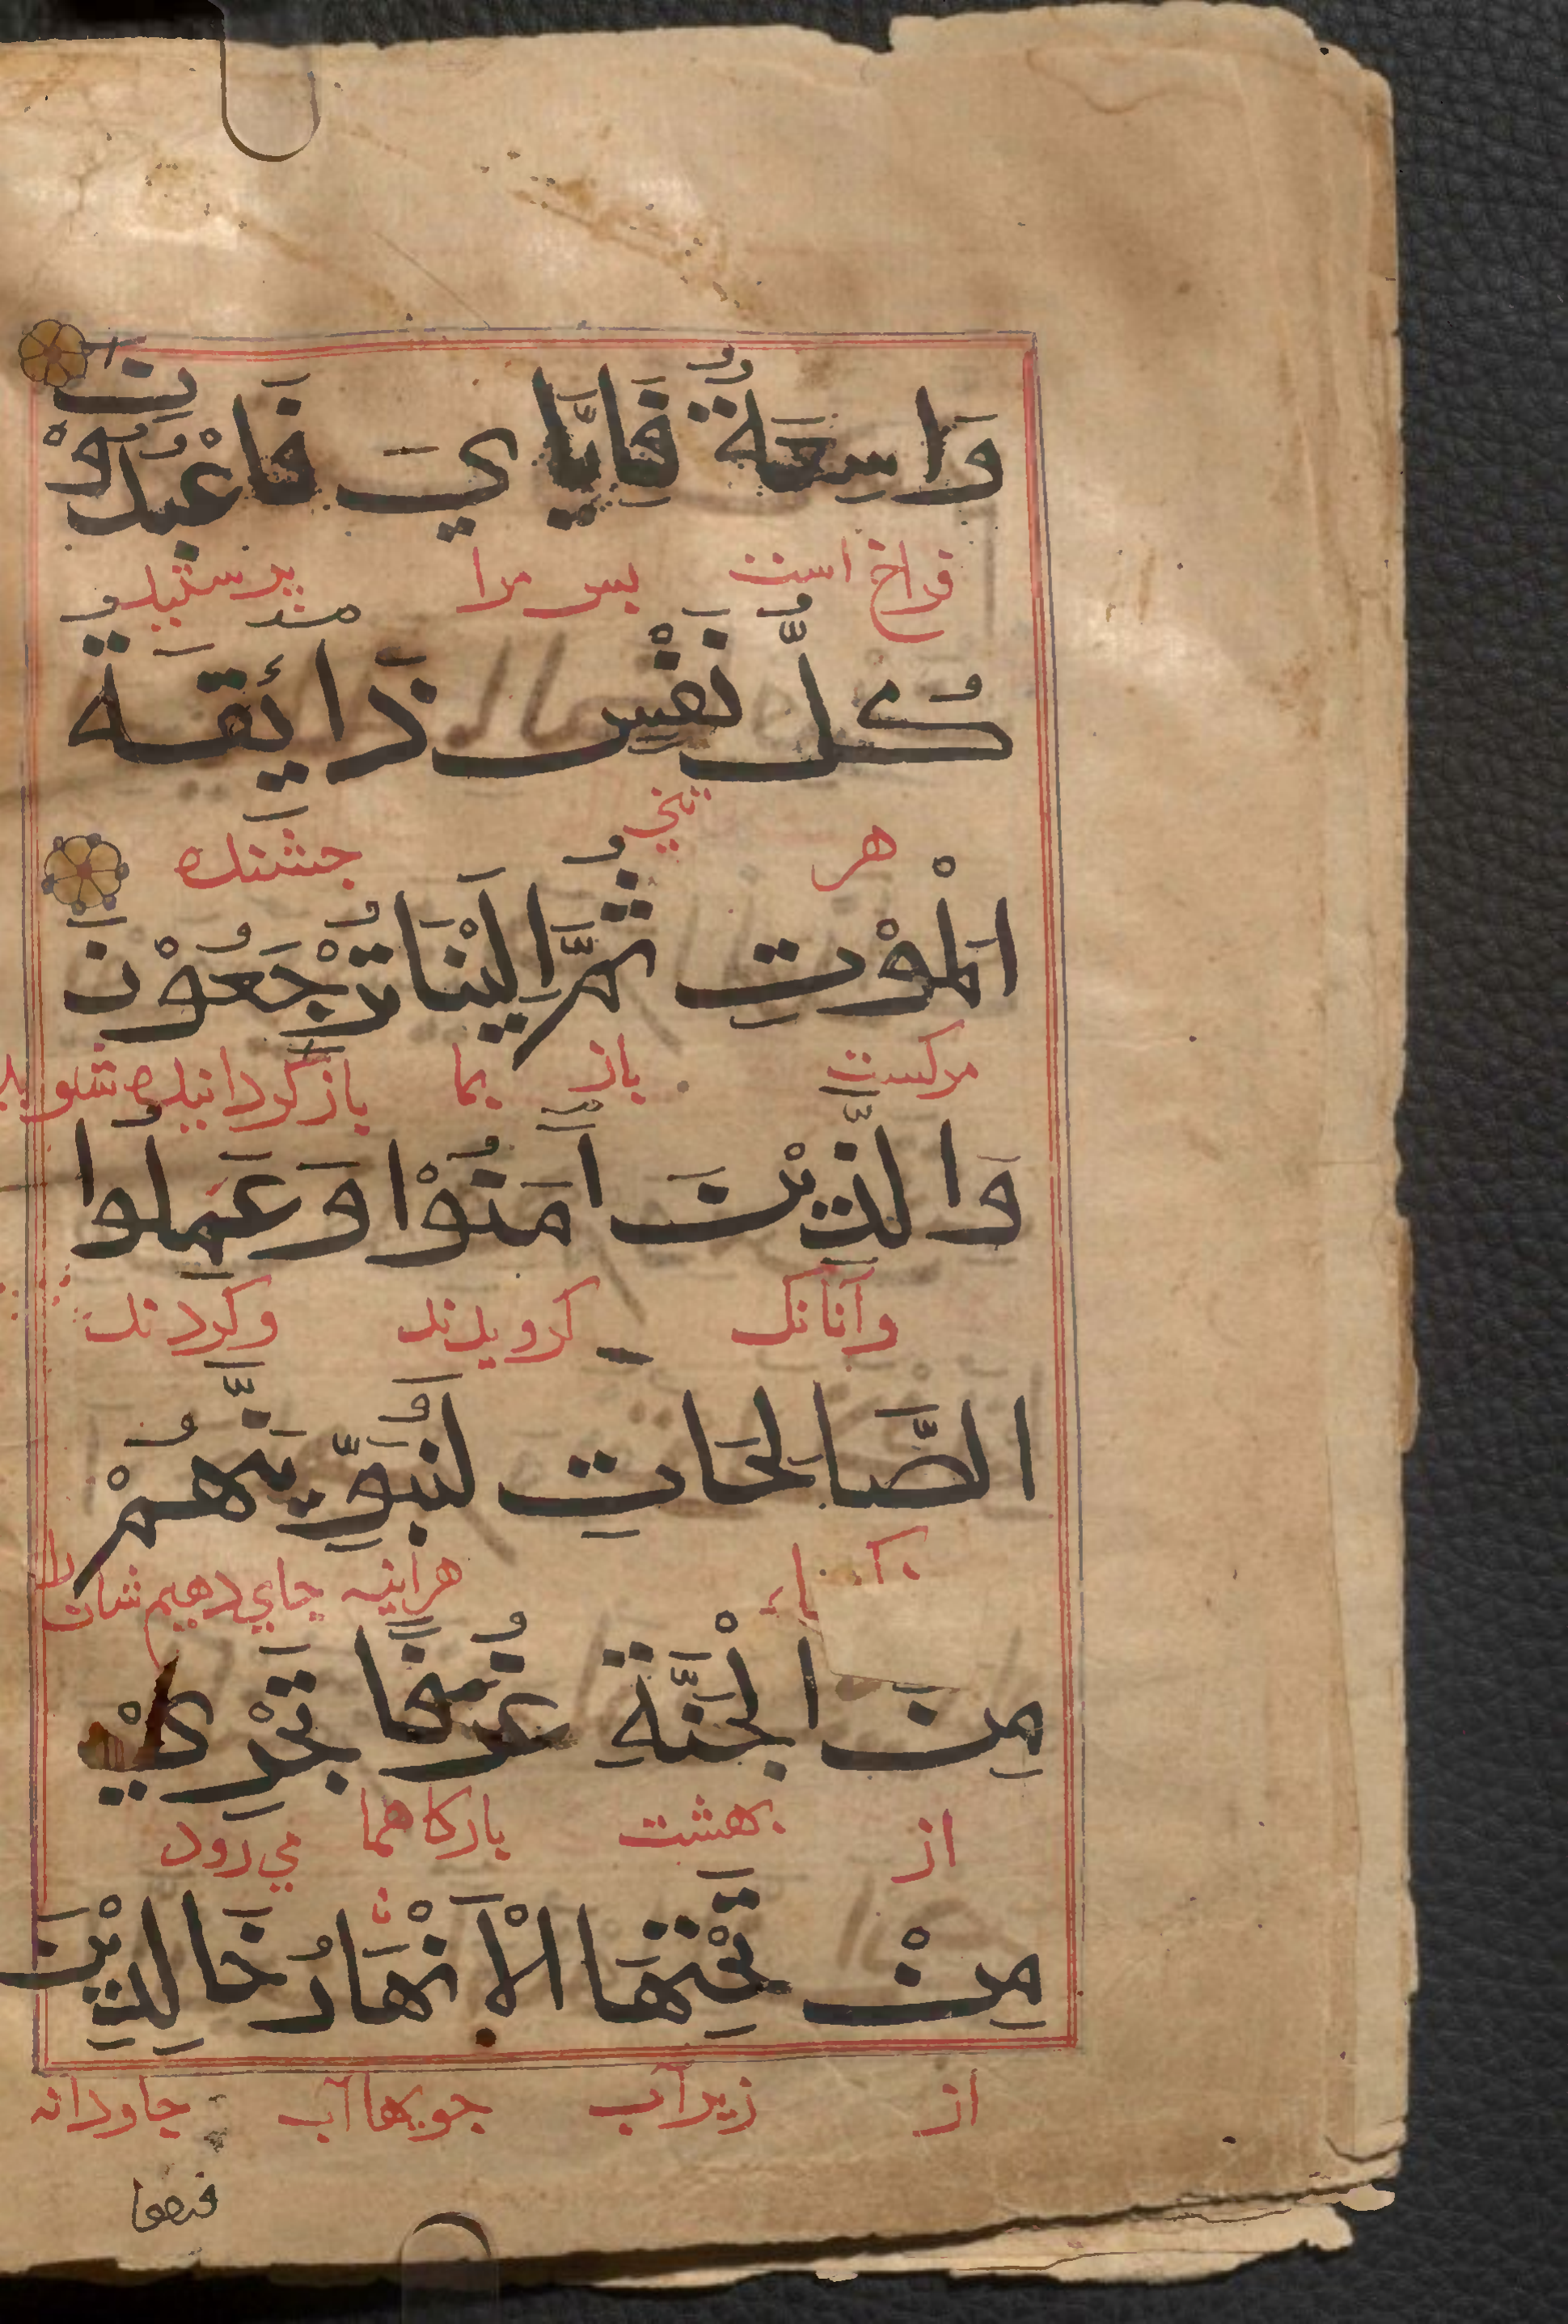 وَاسِعَةٌ فَاِيَّايَ فَاعْبُدُوْنِ
فراخ است بس مرا پرستید
كُلُّ نَفْسٍ ذَائِقَةُ
هر تني جشنده
الْمَوْتِ ثُمَّ اِلَيْنَا تُرْجَعُوْنَ
مركست باز بما باز كردانیده شوید
وَالَّذِيْنَ آمَنُوْا وَعَمِلُوا
وآنانك كرویدند وكردند
الصَّالِحَاتِ لَنُبَوِّيَنَّهُمْ
هراینه جاي دهیم شان را
مِنَ الْجَنَّةِ غُرَفًا تَجْرِيْ
از بهشت باركاهها مي رود
مِنْ تَحْتِهَا الْاَنْهَارُ خَالِدِيْنَ
از زیر آب جویها آب جاودانه
فيها